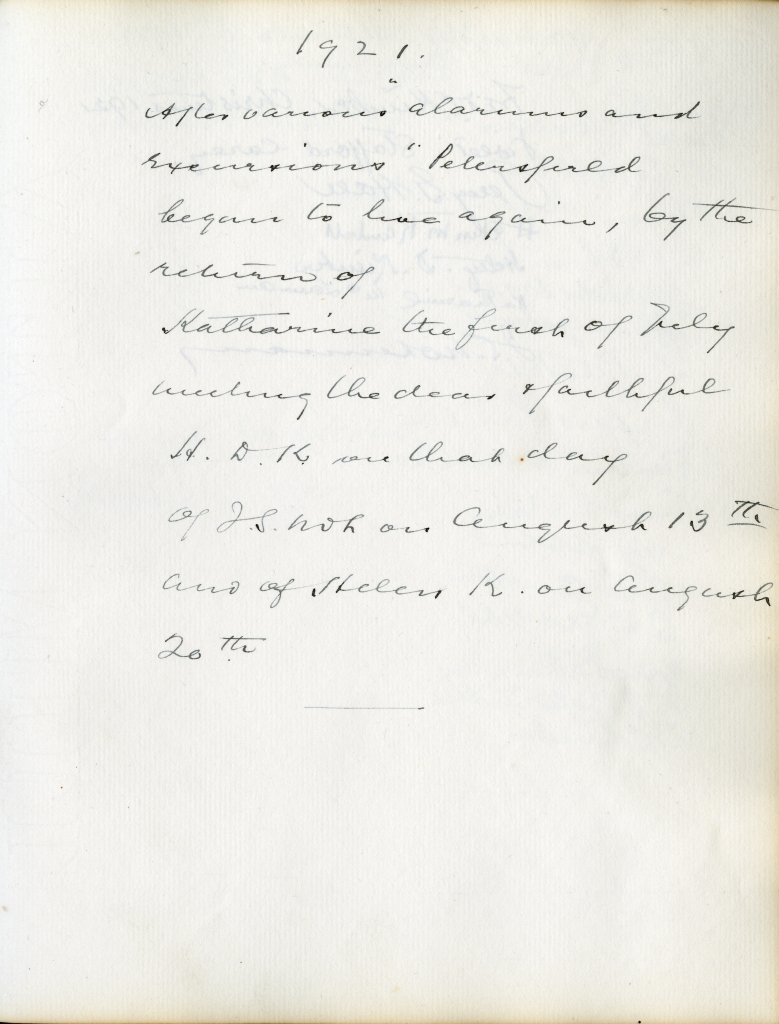 1921.
After various "alarums and
Excursions" Petersfield
began to live again, by the
return of
Katharine the first of July
meeting the dear & faithful
H. D. K. on that day
of J.S. on August 13th
and of Helen K. on August
20th